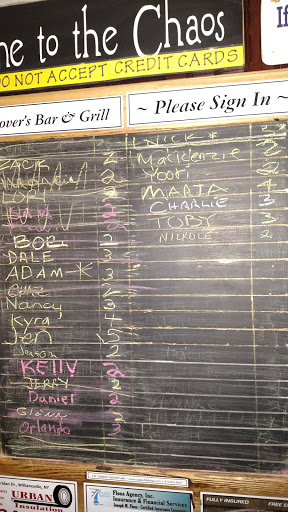 ne to the Chaos
DO NOT ACCEPT CREDIT CARDS
If
over's Bar & Grill
~ Please Sign In ~
ZACK 2
2
LORY 2
PAM 2
2
BOB 2
DALE 3
ADAM-K 3
Chis 2
Nancy 3
Kyra 4
Jen 5
Jason 2
KELLY 2
JERRY 2
Daniel 2
2
Orlando 3
NICK #
MacKenzie 2
Yoori 2
MARIA 4
CHARLIE 3
TOBY 3
NICKOLE 2
ridan Dr., Williamsville, NY
URBAN
Insulation
Floss Agency, Inc.
Insurance & Financial Services
FULLY INSURED